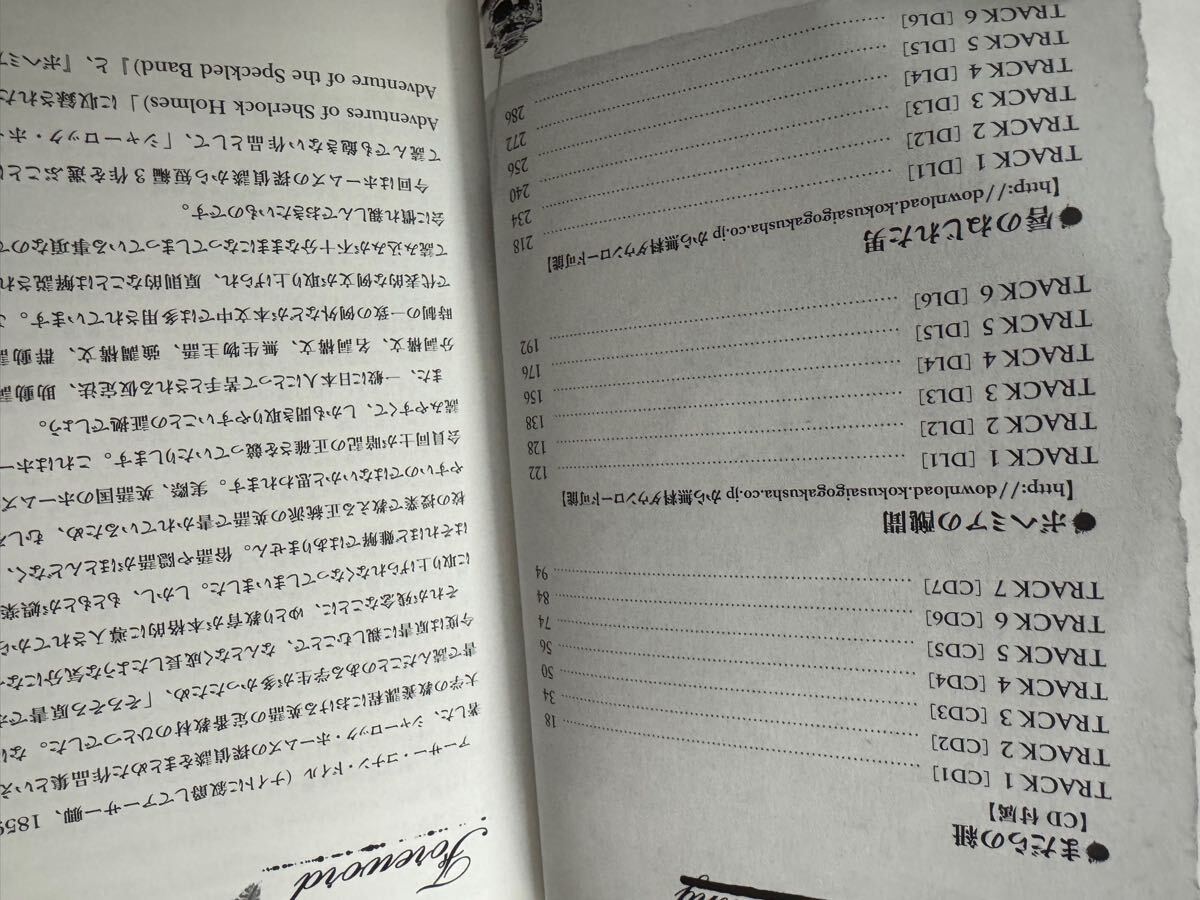 ●まだらの紐
【CD 付属】
TRACK 1 [CD1] 18
TRACK 2 [CD2] 34
TRACK 3 [CD3] 50
TRACK 4 [CD4] 56
TRACK 5 [CD5] 74
TRACK 6 [CD6] 84
TRACK 7 [CD7] 94
●ボヘミアの醜聞
【http://download.kokusaigogakusha.co.jp から無料ダウンロード可能】
TRACK 1 [DL1] 122
TRACK 2 [DL2] 128
TRACK 3 [DL3] 138
TRACK 4 [DL4] 156
TRACK 5 [DL5] 176
TRACK 6 [DL6] 192
●唇のねじれた男
【http://download.kokusaigogakusha.co.jp から無料ダウンロード可能】
TRACK 1 [DL1] 218
TRACK 2 [DL2] 234
TRACK 3 [DL3] 240
TRACK 4 [DL4] 256
TRACK 5 [DL5] 272
TRACK 6 [DL6] 286
Foreword
アーサー・コナン・ドイル（ナイトに叙爵してアーサー卿、1859
著した、シャーロック・ホームズの探偵談をまとめた作品集といえ
大学の教養課程における英語の定番教材のひとつでした。なに
書で読んだことのある学生が多かったため、「そろそろ原書で
今度は原書に親しむことで、なんとなく成長したような気分にな
それが残念なことに、ゆとり教育が本格的に導入されてから
に取り上げられなくなってしまいました。しかし、もともとが娯楽
はそれほど難解ではありません。俗語や隠語がほとんどなく、
校の授業で教える正統派の英語で書かれているため、むしろ
やすいのではないかと思われます。実際、英語国のホームズ
会員同士が暗記の正確さを競っていたりします。これはホー
読みやすくて、しかも聞き取りやすいことの証拠でしょう。
また、一般に日本人にとって苦手とされる仮定法、助動詞
分詞構文、名詞構文、無生物主語、強調構文、群動詞
時制の一致の例外などが本文中では多用されています。
で代表的な例文が取り上げられ、原則的なことは解説され
読み込みが不十分なままになってしまっている事項なので
会に慣れ親しんでおきたいものです。
今回はホームズの探偵談から短編3作を選ぶことに
て読んでも飽きない作品として、「シャーロック・ホー
Adventures of Sherlock Holmes)』に収録された
Adventure of the Speckled Band)』と、『ボヘミア